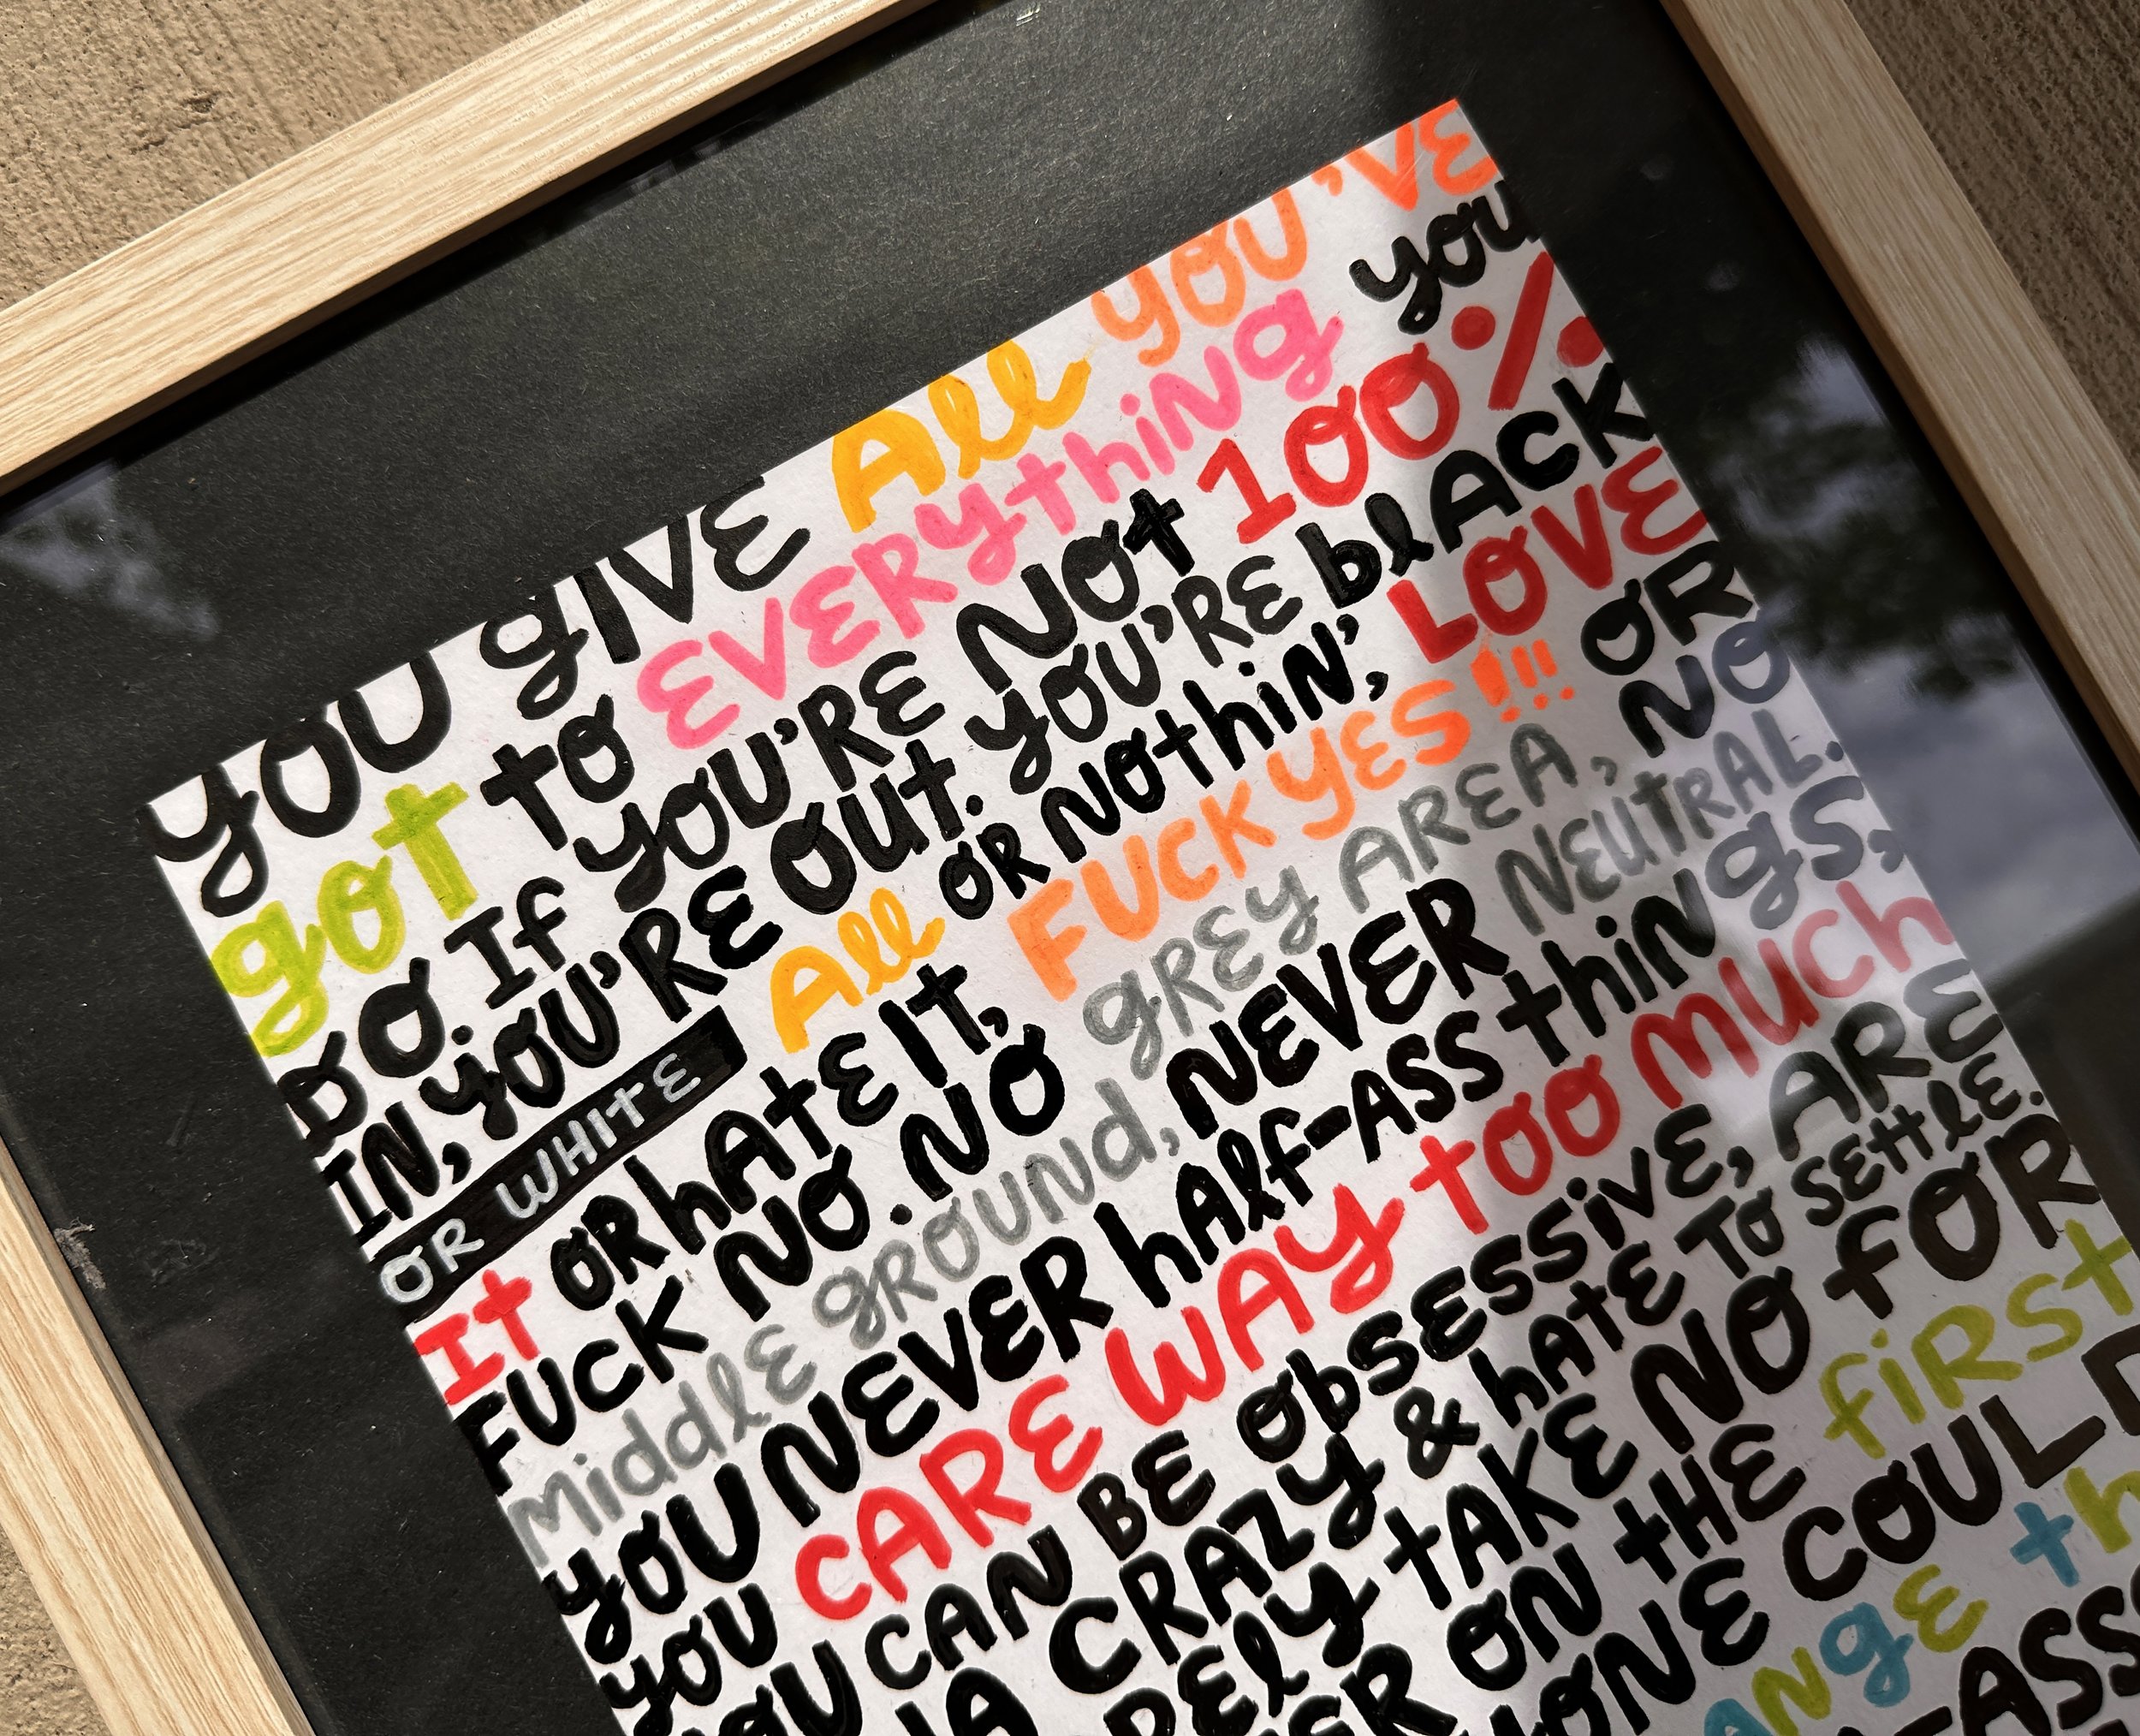 you give All you've
got to EVERything you
DO. If you're NOt 100%
IN, you're out. you're blACK
OR WHITE All OR Nothin', LOVE
It OR hAtE It, FUCK YES!!! OR
FUCK NO. NO gREy AREA, NO
Middle gROUNd, NEVER NEUtRAL.
you NEVER hAlf-ASS thiNgs,
you CARE WAy too MUCh
you CAN BE obsEssivE, ARE
CRAZy & hAtE To SEttlE.
RElY tAKE NO foR
ER ON tHE fiRSt
ONE COULD
ANgE th
-ASS